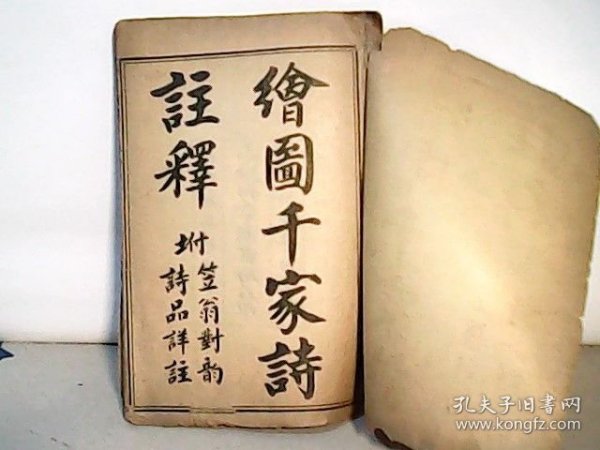 繪圖千家詩
註釋
坿笠翁對韵
詩品詳註
孔夫子旧書网
www.kongfz.com